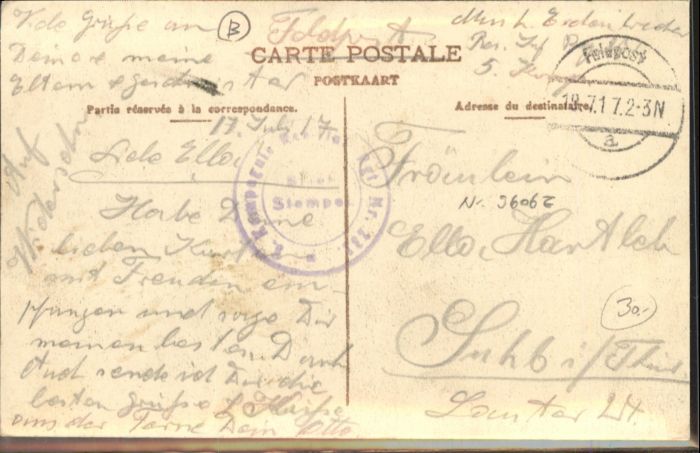 Viele Grüße an
Deine & meine
Eltern & Geschwister
Auf
Wiedersehn
B
Feldpost
CARTE POSTALE
POSTKAART
Partie réservée à la correspondance.
Adresse du destinataire.
5. Komp.
Feldpost
18.7.17.2-3N
a
17. Juli 17.
Liebe Ella!
Habe Deine
lieben Karten
mit Freuden em-
pfangen und sage Dir
meinen besten Dank
Auch sende ich Dir die
besten Grüße & Küsse
aus der Ferne Dein Otto
Kompagnie Reserve
Stempel
Fräulein
Nr. 96062
Ella Hartleb
30.-
Suhl i/Thür